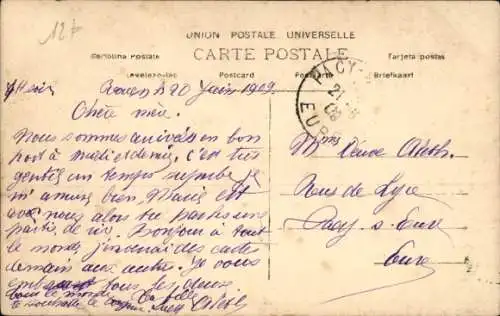 12f
UNION POSTALE UNIVERSELLE
CARTE POSTALE
Cartolina Postale
Tarjeta postal
Levelezö-lap
Postcard
Postkarte
Briefkaart
PACY-
21
09
EURE
Rouen le 20 Juin 1909
Chère mère.
Nous sommes arrivés en bon
port à midi et demie, c'est très
gentil un temps superbe je
m'amuse bien. Marie est
avec nous alors tu
partie de
Bonjour à tout
le monde, j'enverrai des cartes
demain aux autres. Je vous
embrasse tous les deux.
tout le monde
Mme Veuve
Rue de Lyre
Pacy s. Eure
Eure